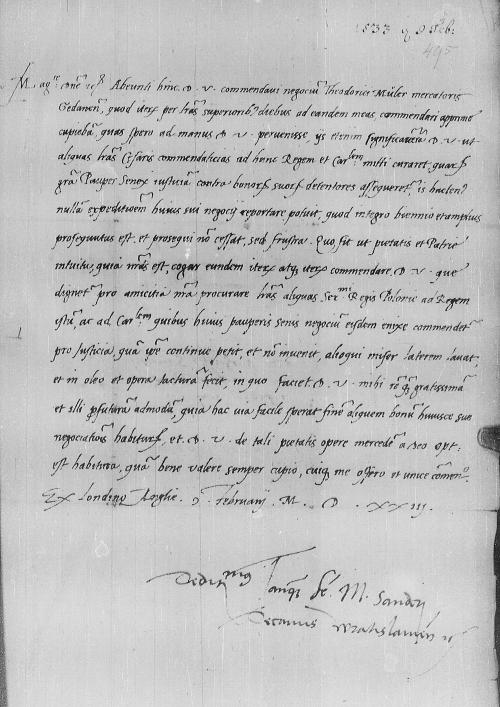 1533 9 Feb:
495
Mag.ce Dne etc. Abeunti hinc D. V. commendavi negociū Theodorici Müler mercatoris
Gedaneñ, quod iterū per lras superioribꝰ diebus ad eandem meas commendari apprime
cupiebā, quas spero ad manus D. V. pervenisse, ijs etenim significavi D. V. ut
aliquas lras Cesaris commendaticias ad hunc Regem et Car.lem mitti curaret, quarū
grā Pauper Senex iusticiā contra bonorū suorū detentores assequeret, is hactenꝰ
nullā expeditioem huius sui negocij reportare potuit, quod integro biennio et amplius
prosequutus est, et prosequi nō cessat, sed frustra. Quo fit ut pietatis et Patrie
intuitu, quia mrās est, cogar eundem iterū atqꝫ iterū commendare, D. V. que
dignet pro amicitia mā procurare lras aliquas Ser.mi Regis Polonie ad Regem
istū, ac ad Car.lem quibus huius pauperis senis negociū eisdem enixe commendet
pro Iusticia, quā ipse continue petit, et nō invenit, alioqui miser laterem lavat,
et in oleo et opera iacturā fecit, in quo faciet D. V. mihi rē gratissimā
et illi pfuturā admodū, quia hac via facile sperat finē aliquem bonū huiusce sue
negociationis habiturū, et D. V. de tali pietatis opere mercedē a deo opt:
est habitura, quā bene valere semper cupio, cuiqꝫ me offero et unice cōmendo.
Ex Londino Anglie. 9 februarij M. D. XXXIIJ.
Dedit.mus Tanqꝫ fr. M. Sander
Decanus Wratislavień